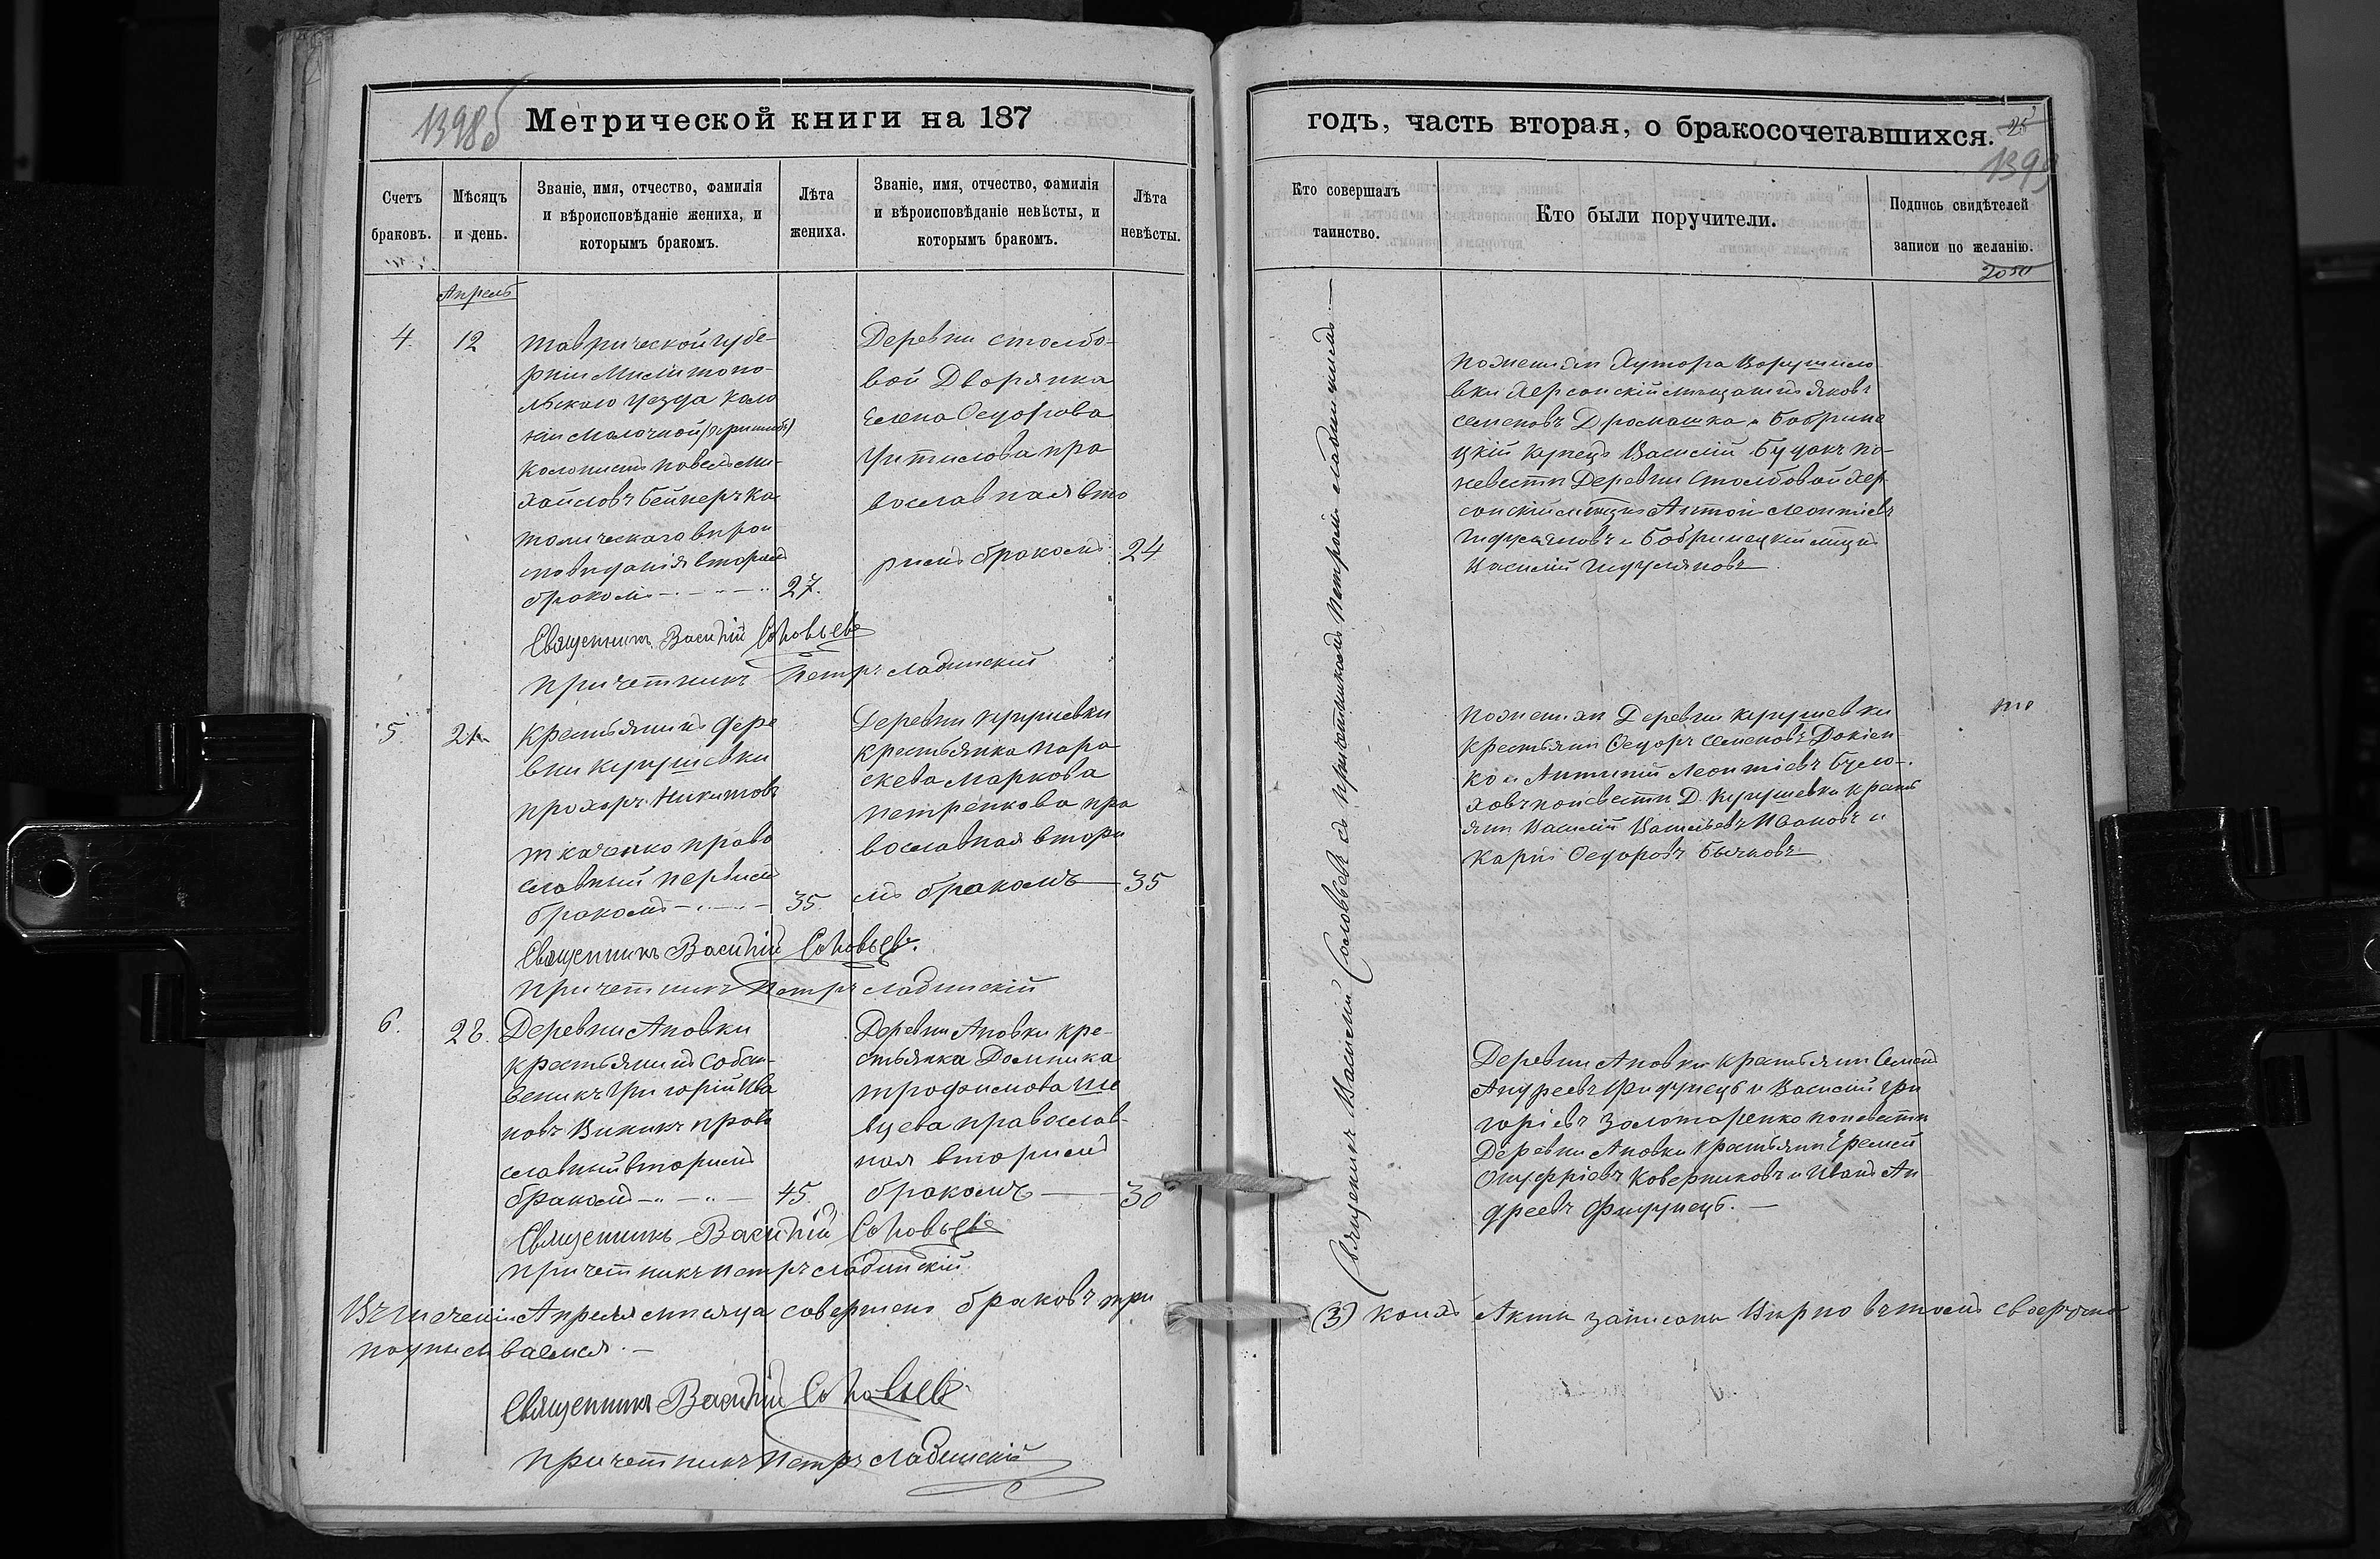 1398б
Метрической книги на 187
Счетъ браковъ.
Мѣсяцъ и день.
Званіе, имя, отчество, фамилія
и вѣроисповѣданіе жениха, и
которымъ бракомъ.
Лѣта жениха.
Званіе, имя, отчество, фамилія
и вѣроисповѣданіе невѣсты, и
которымъ бракомъ.
Лѣта невѣсты.
Апрель
4.
12
Таврической губе-
рніи Милитопо-
льскаго уезда коло
ніи Молочной
колонистъ Павелъ Ми-
хайловъ Бейнеръ ка
толическаго вѣрои
сповѣданія вторымъ
бракомъ
27.
Деревни Столбо-
вой Дворянка
Елена Ѳедорова
пра
вославная вто
рымъ бракомъ
24
Священникъ Василій Соловьевъ
Причетникъ Петръ Ладинскій
5.
21
Крестьянинъ дере
вни
Прохоръ Никитовъ
Ткаченко право
славный первымъ
бракомъ
35.
Деревни
крестьянка Пара
скева Маркова
Петренкова пра
вославная вторы
мъ бракомъ
35
Священникъ Василій Соловьевъ.
Причетникъ Петръ Ладинскій
6.
28.
Деревни Ановки
крестьянинъ собст-
веникъ Григорій Ива
новъ право
славный вторымъ
бракомъ
45.
Деревни Ановки кре-
стьянка Домника
Трофимова Ше
вцева православ-
ная вторымъ
бракомъ
30
Священникъ Василій Соловьевъ
Причетникъ Петръ Ладинскій
Въ теченіи Апреля месяца совершено браковъ три
подписываемся.
Священникъ Василій Соловьевъ
Причетникъ Петръ Ладинскій
годъ, часть вторая, о бракосочетавшихся.
25
1399
Кто совершалъ
таинство.
Кто были поручители.
Подпись свидѣтелей
записи по желанію.
2050
Священникъ Василій Соловьевъ съ причетникомъ Петромъ Ладинскимъ
По женихи Хутора
вки Херсонскій мещанинъ Яковъ
Семеновъ Дромашка и Бобрине
цкій купецъ Василій Будакъ по
невести Деревни Столбовой Хер
сонскій мещ. Антонъ Леонтіевъ
и Бобринецкій мещ.
Василій
По женихи Деревни
крестьянин Ѳедоръ Семеновъ
ко и Леонтіевъ
по невести Д. крест
янин Василій Васильевъ Ивановъ и
Карпъ Ѳедоровъ Бычковъ
Деревни Ановки крестьянин Семенъ
Андреевъ и Василій Гри
горіевъ Золотаренко по невести
Деревни Ановки крестьянин Еремей
Онуфріевъ Коверниковъ и Иванъ Ан
дреевъ
(3) коихъ Акты записаны верно въ томъ своеручно